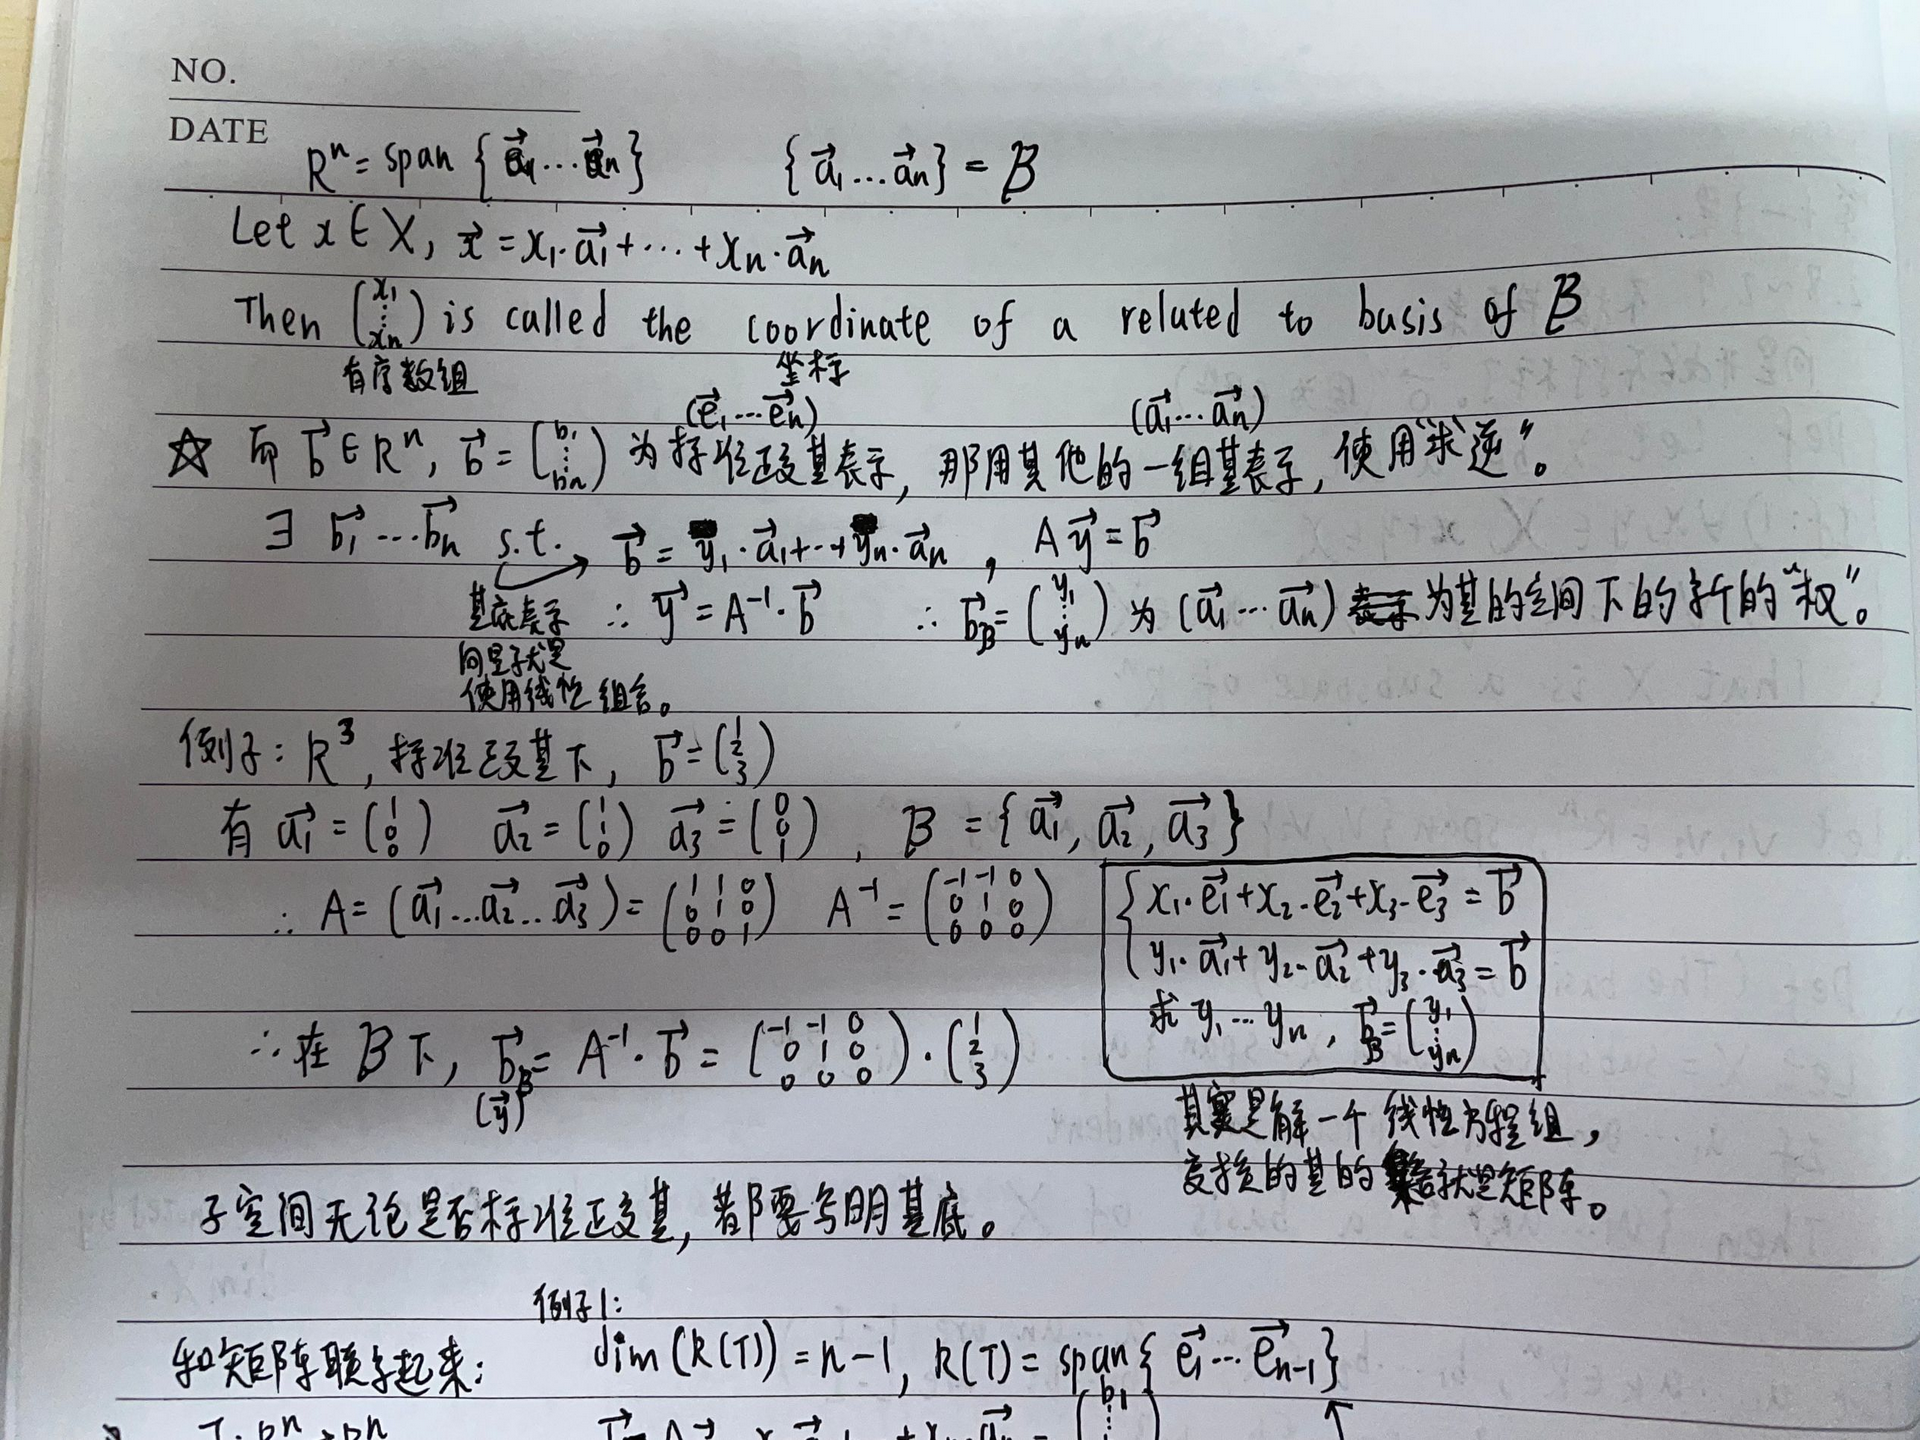 NO.
DATE
Rⁿ = span {a⃗₁…a⃗ₙ}    {a⃗₁…a⃗ₙ} = B
Let x ∈ X, x⃗ = x₁·a⃗₁+…+xₙ·a⃗ₙ
Then (x₁ ⋮ xₙ) is called the coordinate of a related to basis of B
有序数组    坐标
(e⃗₁…e⃗ₙ)    (a⃗₁…a⃗ₙ)
☆ 而 b⃗ ∈ Rⁿ, b⃗ = (b₁ ⋮ bₙ) 为标准正交基表示, 那用其他的一组基表示, 使用“求逆”。
∃ b⃗₁…b⃗ₙ s.t. b⃗ = y₁·a⃗₁+…+yₙ·a⃗ₙ, A y⃗ = b⃗
基底表示 ∴ y⃗ = A⁻¹·b⃗    ∴ b⃗_B = (y₁ ⋮ yₙ) 为 (a⃗₁…a⃗ₙ) 为基的空间下的新的“权”。
向量就是
使用线性组合。
例子: R³, 标准正交基下, b⃗ = (1 2 3)
有 a⃗₁ = (1 0 0)  a⃗₂ = (1 1 0)  a⃗₃ = (0 0 1), B = {a⃗₁, a⃗₂, a⃗₃}
∴ A = (a⃗₁…a⃗₂…a⃗₃) = (1 1 0 / 0 1 0 / 0 0 1)  A⁻¹ = (-1 -1 0 / 0 1 0 / 0 0 0)
{ x₁·e⃗₁+x₂·e⃗₂+x₃·e⃗₃ = b⃗
y₁·a⃗₁+y₂·a⃗₂+y₃·a⃗₃ = b⃗
求 y₁…yₙ, b⃗_B = (y₁ ⋮ yₙ)
∴ 在 B 下, b⃗_B = A⁻¹·b⃗ = (-1 -1 0 / 0 1 0 / 0 0 0)·(1 2 3)
(y⃗)
其实是解一个线性方程组,
变换的基的就是矩阵。
子空间无论是否标准正交基, 都要写明基底。
例子1:
和矩阵联系起来: dim(R(T)) = n-1, R(T) = span{e⃗₁…e⃗ₙ₋₁}